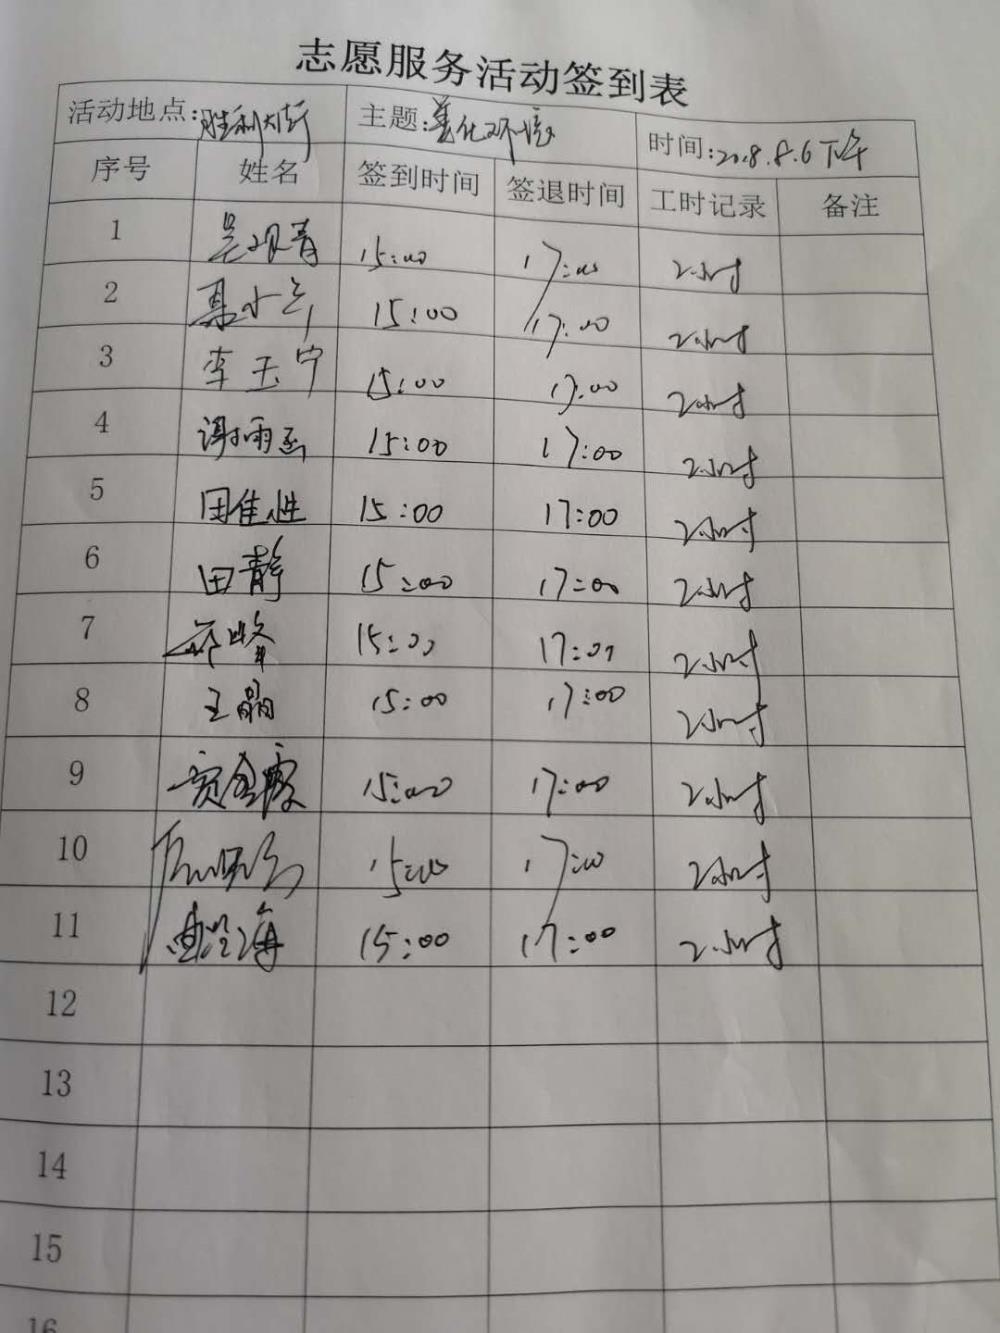 志愿服务活动签到表
活动地点:胜利大街 主题:美化环境 时间:2018.8.6下午
序号 姓名 签到时间 签退时间 工时记录 备注
1 15:00 17:00 2小时
2 15:00 17:00 2小时
3 李玉宁 15:00 17:00 2小时
4 谢雨函 15:00 17:00 2小时
5 田佳性 15:00 17:00 2小时
6 田静 15:00 17:00 2小时
7 15:00 17:00 2小时
8 王晶 15:00 17:00 2小时
9 15:00 17:00 2小时
10 15:00 17:00 2小时
11 15:00 17:00 2小时
12
13
14
15
16